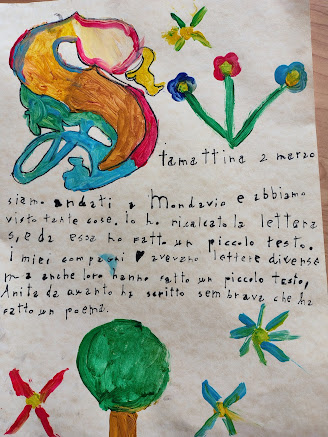 S
tamattina 2 marzo
siamo andati a Mondavio e abbiamo
visto tante cose. Io ho ricalcato la lettera
s, e da essa ho fatto un piccolo testo.
i miei compagni avevano lettere diverse
ma anche loro hanno fatto un piccolo testo,
Anita da quanto ha scritto sembrava che ha
fatto un poema.